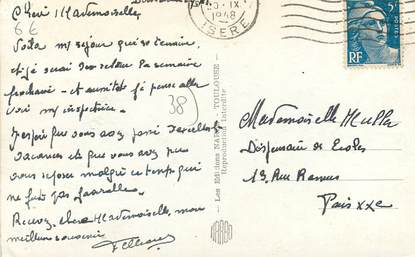 Chère Mademoiselle
66
Voilà mon séjour qui se termine
et je serai de retour la semaine
prochaine - et aussitôt je pense aller
voir mon inspectrice.
38
J'espère que vous avez passé d'excellentes
vacances et que vous avez pu
vous reposer malgré ce temps qui
ne fut pas favorable.
Recevez, chère Mademoiselle, mon
meilleur souvenir.
IX
1948
ISERE
5F
POSTES
RF
Les Editions NARBO - TOULOUSE -
Reproductions Interdite
Mademoiselle
Dispensaire des Ecoles
19, Rue Ramus
Paris XXe